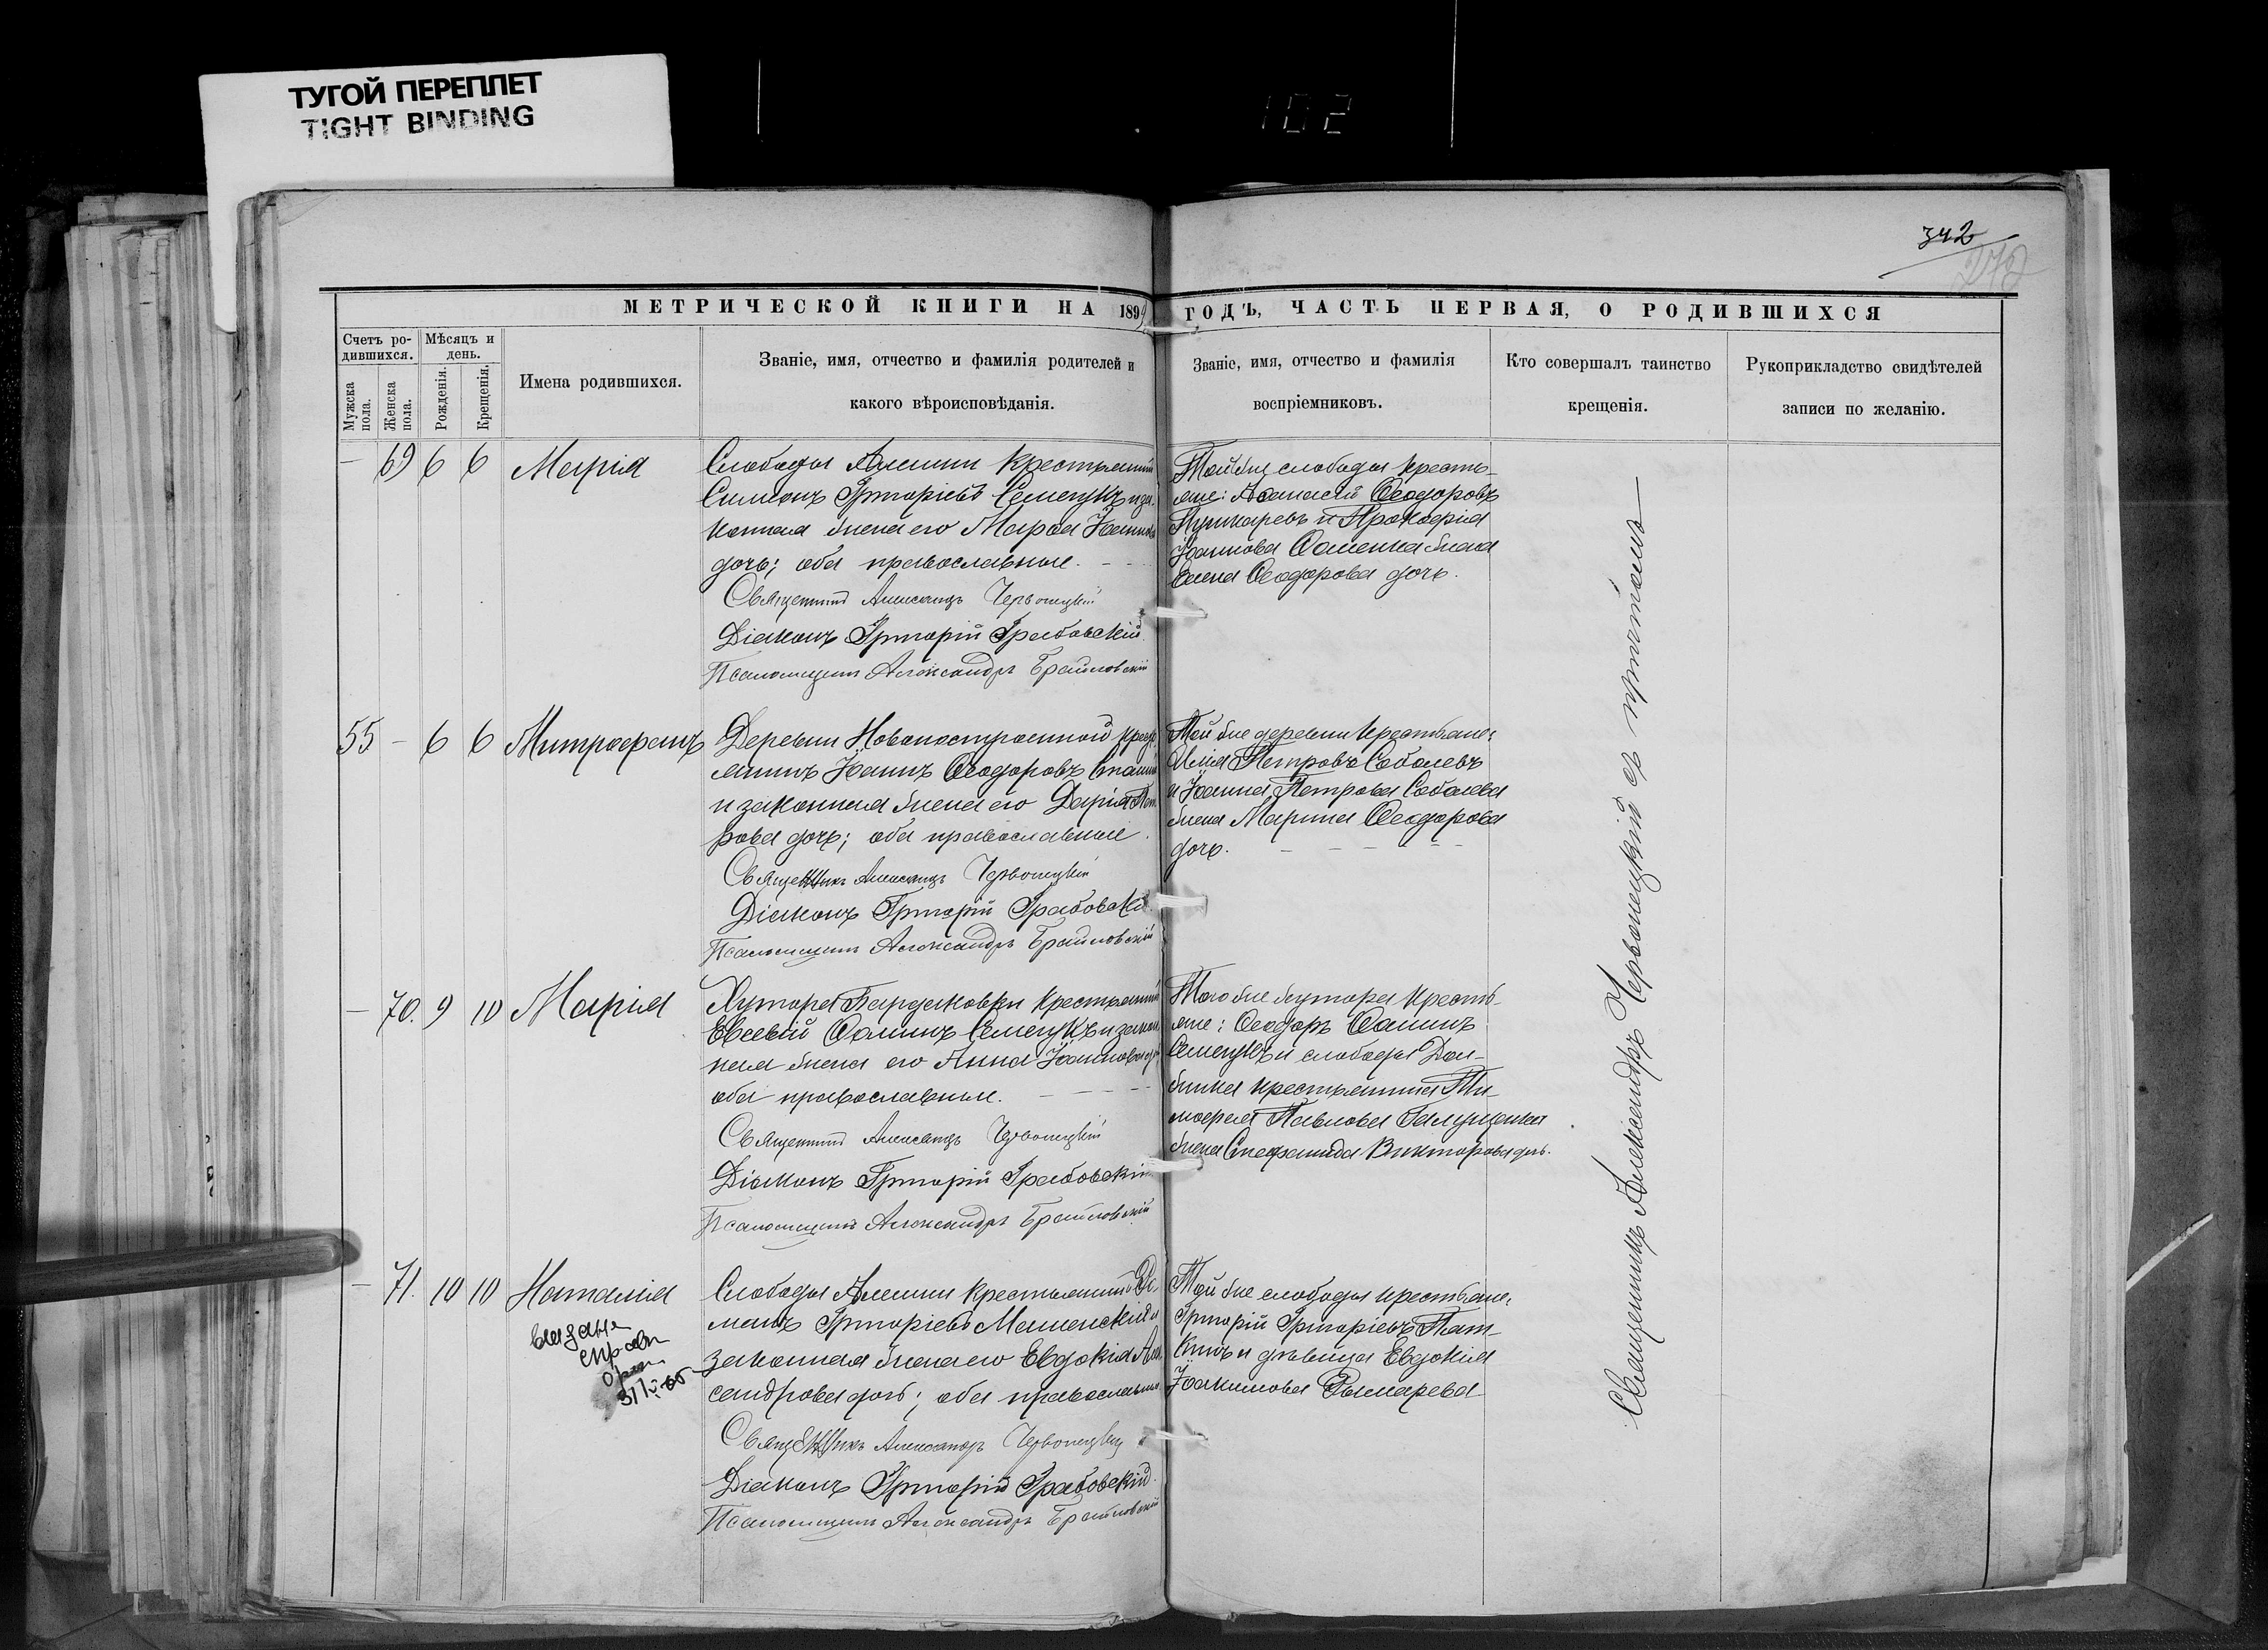 ТУГОЙ ПЕРЕПЛЕТ
TIGHT BINDING
102
342
МЕТРИЧЕСКОЙ КНИГИ НА 1899 ГОДЪ, ЧАСТЬ ПЕРВАЯ, О РОДИВШИХСЯ
Счетъ ро-
дившихся.
Мѣсяцъ и
день.
Мужска
пола.
Женска
пола.
Рожденія.
Крещенія.
Имена родившихся.
Званіе, имя, отчество и фамилія родителей и
какого вѣроисповѣданія.
Званіе, имя, отчество и фамилія
воспріемниковъ.
Кто совершалъ таинство
крещенія.
Рукоприкладство свидѣтелей
записи по желанію.
— 69 6 6 Марія
Слободы Алешни крестьянинъ
Симеонъ Григоріевъ Семенукъ и за-
конная жена его Марѳа Іоаннова
дочь; оба православные.
Священникъ Александръ Червонецкій
Діаконъ Григорій Грабовскій
Псаломщикъ Александръ Браиловскій
Той же слободы кресть-
яне: Аѳанасій Ѳеодоровъ
Пушкаревъ и Прокофія
Іоаннова Ѳоменка жена
Елена Ѳеодорова дочь.
55 — 6 6 Митрофанъ
Деревни Новопостроенной крест
янинъ Іоаннъ Ѳеодоровъ
и законная жена его Дарія Пет
рова дочь; оба православные.
Священникъ Александръ Червонецкій
Діаконъ Григорій Грабовскій
Псаломщикъ Александръ Браиловскій
Той же деревни крестьяне:
Илія Петровъ Соболевъ
и Іоанна Петрова Соболева
жена Марина Ѳеодорова
дочь.
— 70. 9 10 Марія
Хутора Бардаковки крестьянинъ
Евсевій Ѳоминъ Семенукъ и закон
ная жена его Анна Іоаннова
оба православные.
Священникъ Александръ Червонецкій
Діаконъ Григорій Грабовскій
Псаломщикъ Александръ Браиловскій
Того же хутора кресть-
яне: Ѳеодоръ Ѳоминъ
Семенукъ и слободы Дол-
жика крестьянина Ти-
моѳея Павлова Галущенка
жена Стефанида Викторова дочь.
— 71. 10 10 Наталія
Выдана
справк
31/V-05
Слободы Алешни крестьянинъ Ро-
манъ Григоріевъ Машенскій и
законная жена его Евдокія Алек
сандрова дочь; оба православные
Священникъ Александръ Червонецкій
Діаконъ Григорій Грабовскій
Псаломщикъ Александръ Браиловскій
Той же слободы крестьяне:
Григорій Григоріевъ Пят-
кинъ и дѣвица Евдокія
Іоакимова Рымарева
Священникъ Александръ Червонецкій съ причтомъ